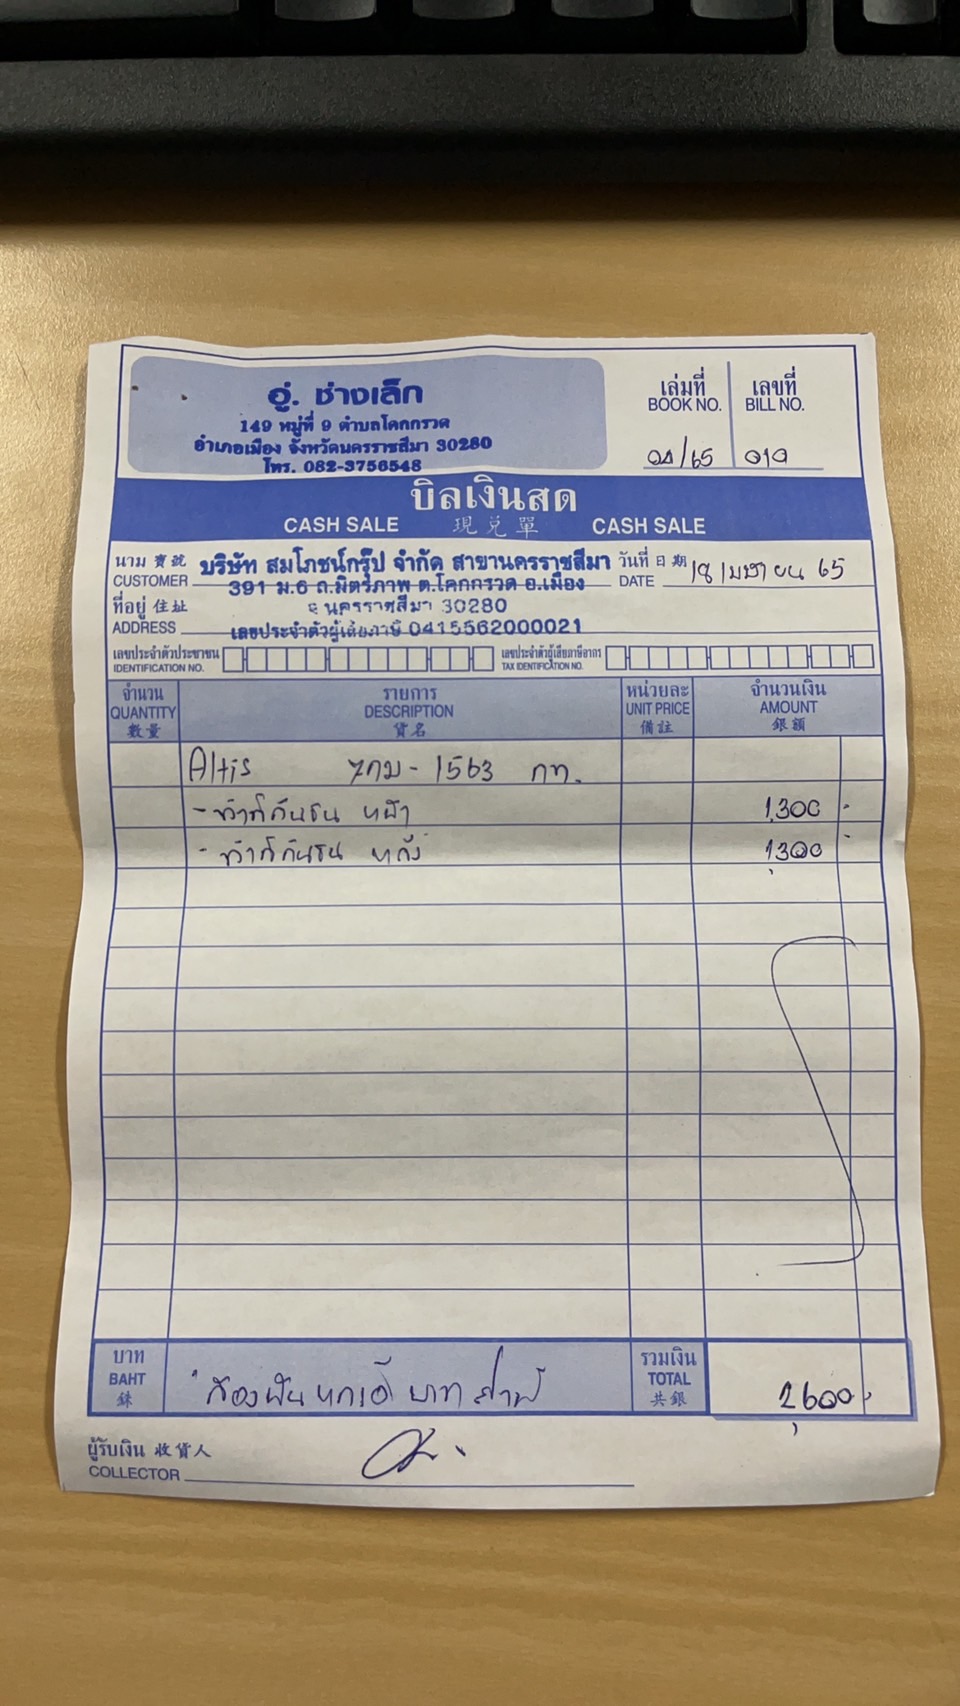 อู่. ช่างเล็ก
149 หมู่ที่ 9 ตำบลโคกกรวด
อำเภอเมือง จังหวัดนครราชสีมา 30280
โทร. 082-3756548
เล่มที่ เลขที่
BOOK NO. BILL NO.
04/65 010
บิลเงินสด
CASH SALE 現兌單 CASH SALE
นาม 寶號 บริษัท สมโภชน์กรุ๊ป จำกัด สาขานครราชสีมา วันที่ 日期 18 เมษายน 65
CUSTOMER 391 ม.6 ถ.มิตรภาพ ต.โคกกรวด อ.เมือง DATE
ที่อยู่ 住址 จ นครราชสีมา 30280
ADDRESS เลขประจำตัวผู้เสียภาษี 0415562000021
เลขประจำตัวประชาชน เลขประจำตัวผู้เสียภาษีอากร
IDENTIFICATION NO. TAX IDENTIFICATION NO.
จำนวน รายการ หน่วยละ จำนวนเงิน
QUANTITY DESCRIPTION UNIT PRICE AMOUNT
數量 貨名 備註 銀額
Altis 7กม-1563 กท.
- ทำสีกันชน หน้า 1,300 -
- ทำสีกันชน หลัง 1,300 -
บาท รวมเงิน
BAHT สองพันหกร้อยบาท TOTAL 2,600 -
銖 共銀
ผู้รับเงิน 收貨人
COLLECTOR